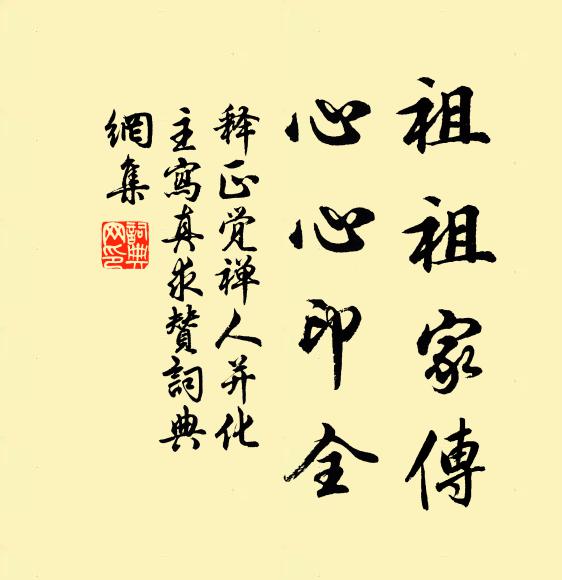 祖祖家傳
心心印全
释正觉禅人并化
主寫真求贊詞典
網集
詞典網印